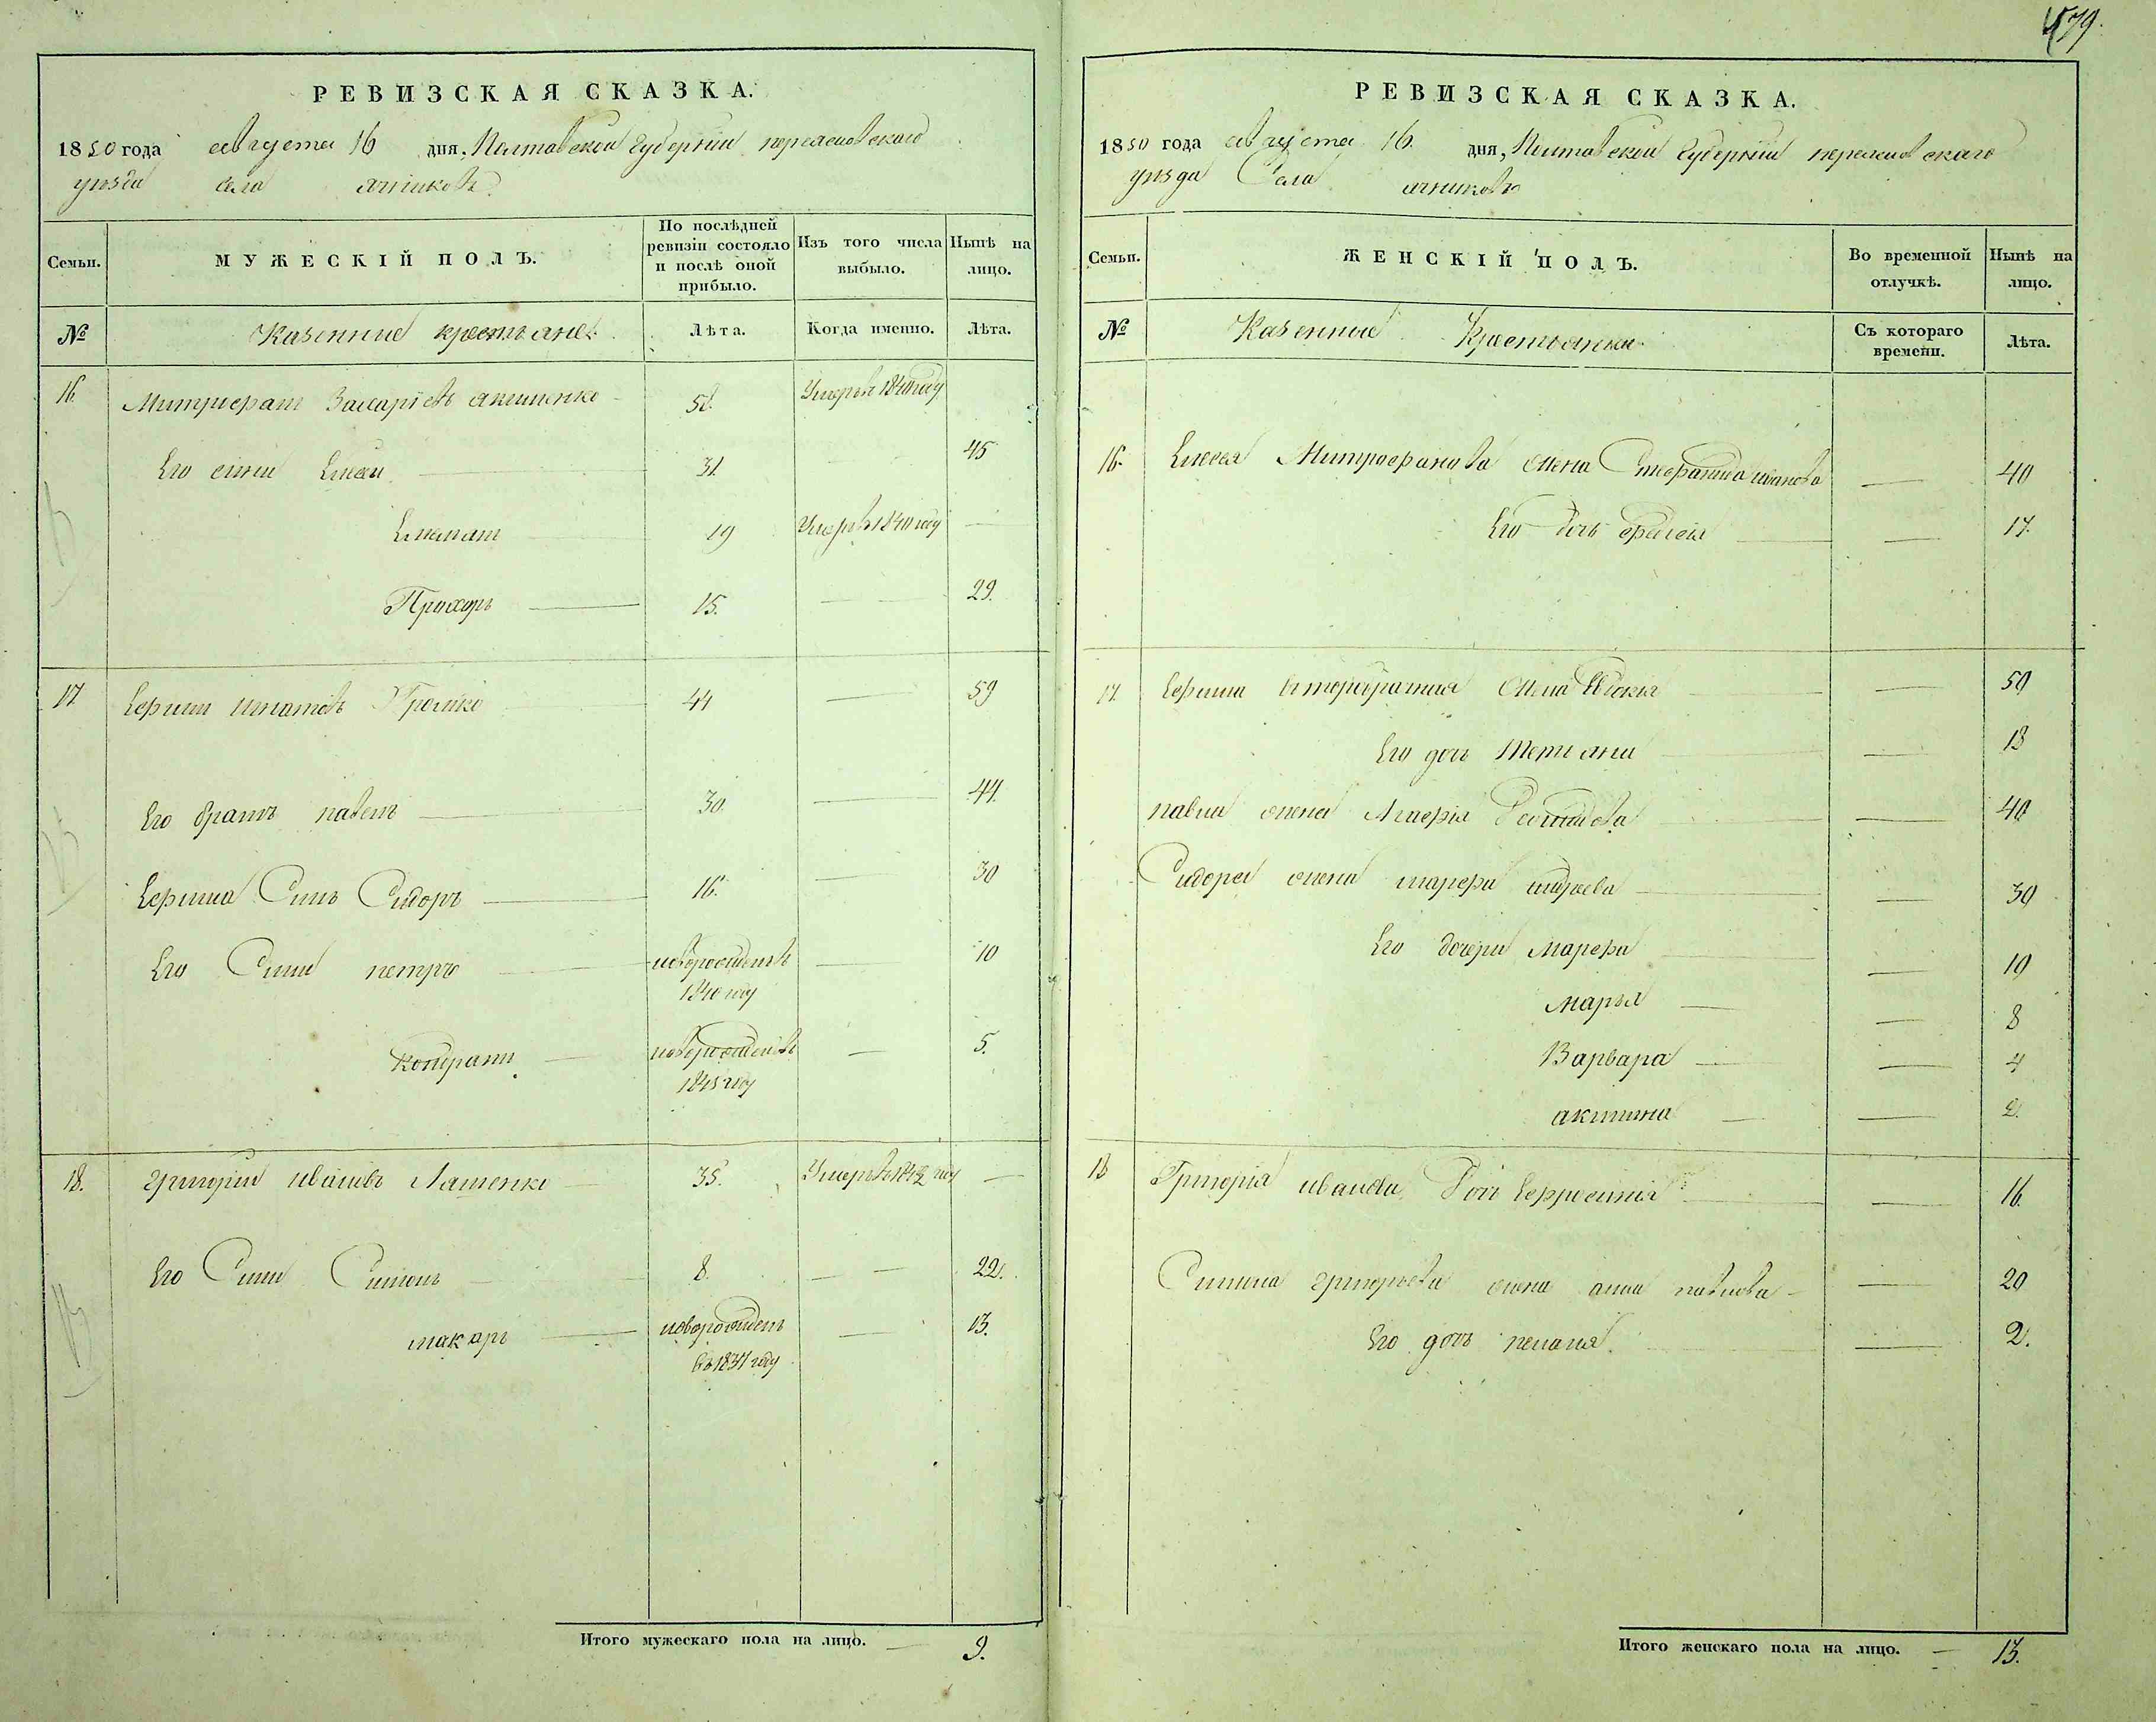 479.
РЕВИЗСКАЯ СКАЗКА.
1850 года августа 16 дня, Полтавской Губернии переяславского
уезда села
Семьи.
МУЖЕСКІЙ ПОЛЪ.
По послѣдней ревизіи состояло и послѣ оной прибыло.
Изъ того числа выбыло.
Нынѣ на лицо.
№
Казенние крестьяне
Лѣта.
Когда именно.
Лѣта.
16. Митрофан 50. Умеръ 1840 году
Его сини 31 45
19 Умеръ 1840 году —
Прохоръ — 15. — 29.
17. Игнатовъ 44 — 59
Его братъ павелъ — 30. — 44.
Сынъ Сидоръ — 16. — 30
Его Сини петръ — новорожденъ 1840 году — 10
Кондратъ — новорожденъ 1845 году — 5.
18. григорій ивановъ Ляшенко — 35. Умеръ году —
Его Сини Симонъ — 8. — 22.
макаръ — новорожден въ 1837 году — 13.
Итого мужескаго пола на лицо. — 9.
РЕВИЗСКАЯ СКАЗКА.
1850 года августа 16. дня, Полтавской Губернии переяславскаго
уезда Села
Семьи.
ЖЕНСКІЙ ПОЛЪ.
Во временной отлучкѣ.
Нынѣ на лицо.
№
Казенные Крестьянки
Съ котораго времени.
Лѣта.
16. Митрофанова жена иванова — 40
Его дочь — — 17.
17. жена — — 50
Его дочь Тетяна — — 18
павла жена — — 40
Сидора жена марфа — — 30
Его дочери Марфа — — 10
марья — — 8
Варвара — — 4
акилина — — 2.
18 Григорія иванова Дочь — — 16.
Симона григорьева жена анна павлова — — 20
Его дочь пелагея — — 2.
Итого женскаго пола на лицо. — 13.